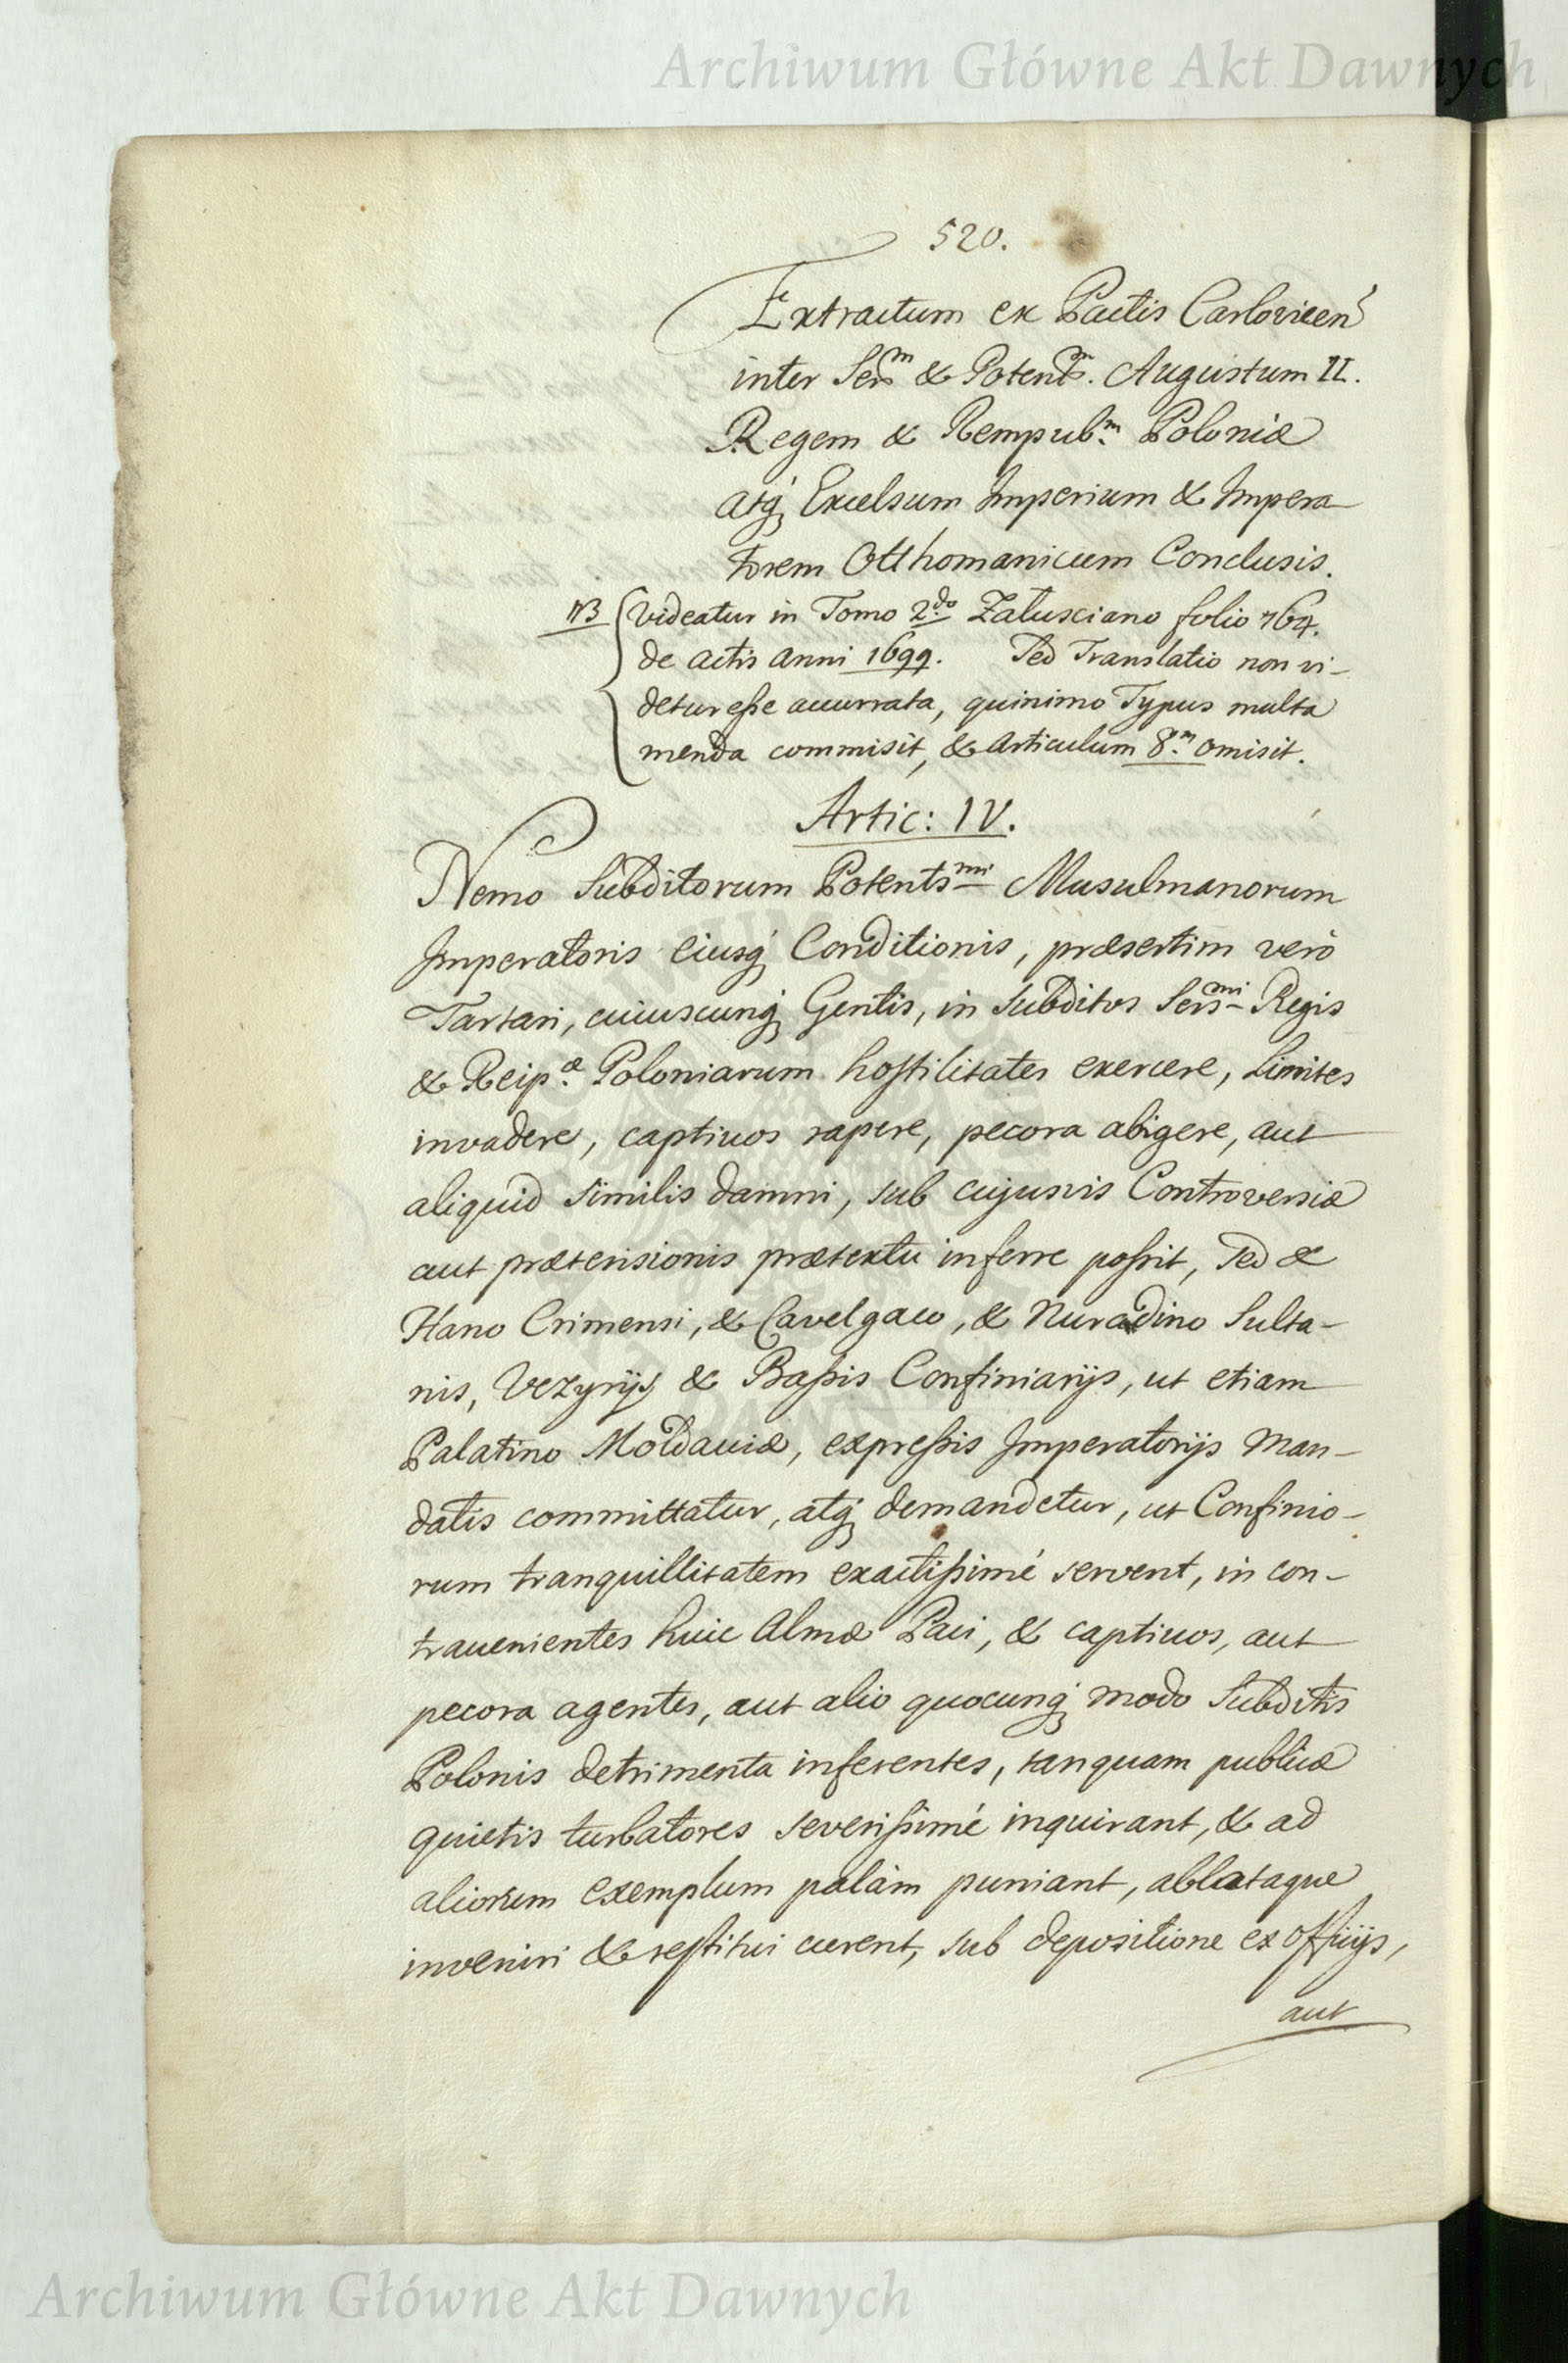 Archiwum Główne Akt Dawnych
520.
Extractum ex Pactis Carlovicen
inter Serm & Potentm. Augustum II.
Regem & Rempubm. Poloniæ
atq; Excelsum Imperium & Impera-
torem Otthomanicum Conclusis.
NB Videatur in Tomo 2do Zalusciano folio 764.
de actis anni 1699. Sed Translatio non vi-
detur eſse accurrata, quinimo Typus multa
menda commisit, & Articulum 8m. omisit.
Artic: IV.
Nemo Subditorum Potentsmi Musulmanorum
Imperatoris eiusq; Conditionis, præsertim verò
Tartari, cuiuscunq; Gentis, in Subditos Sersmi Regis
& Reip.æ Poloniarum hoſtilitates exercere, Limites
invadere, captivos rapere, pecora abigere, aut
aliquid similis damni, sub cujusvis Controversiæ
aut prætensionis prætextu inferre poſsit, sed &
Hano Crimensi, & Cavelgaco, & Nuradino Sulta-
nis, Vezyrijs & Baſsis Confiniarijs, ut etiam
Palatino Moldaviæ, expreſsis Imperatorijs Man-
datis committatur, atq; demandetur, ut Confinio-
rum tranquillitatem exactiſsimé servent, in con-
travenientes huic Almæ Paci, & captivos, aut
pecora agentes, aut alio quocunq; modo Subditis
Polonis detrimenta inferentes, tanquam publicæ
quietis turbatores severiſsimé inquirant, & ad
aliorum exemplum palàm puniant, ablataque
inveniri & reſtitui curent, sub depositione ex Officijs,
aut
Archiwum Główne Akt Dawnych